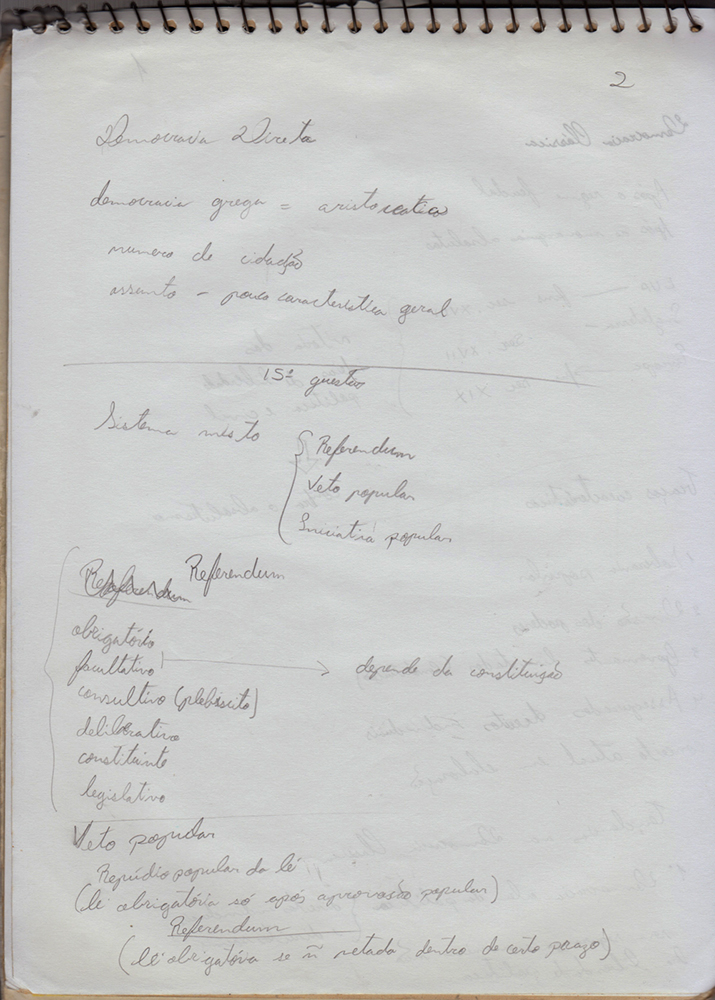 2
Democracia Direta
democracia grega = aristocratica
numero de cidadão
assunto - pouco característica geral
15ª questão
Sistema misto
Referendum
Veto popular
Iniciativa popular
Referendum Referendum
obrigatório
facultativo → depende da constituição
consultivo (plebiscito)
deliberativo
constituinte
legislativo
Veto popular
Repúdio popular da lei
(lei obrigatória só após aprovação popular)
Referendum
(lei obrigatória se ñ vetada dentro de certo prazo)